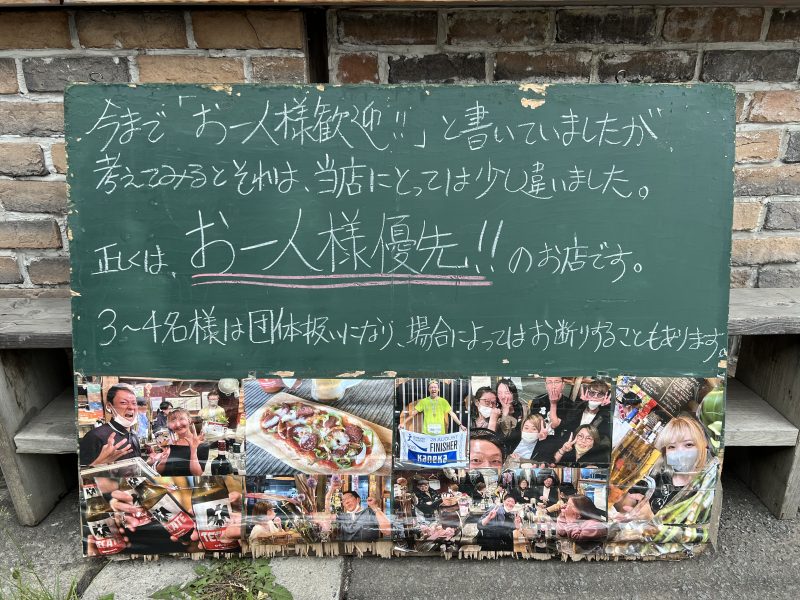 今まで「お一人様歓迎!!」と書いていましたが
考えてみるとそれは、当店にとっては少し違いました。
正しくは、お一人様優先!!のお店です。
3〜4名様は団体扱いになり、場合によってはお断りすることもあります。
FINISHER
Kaneka